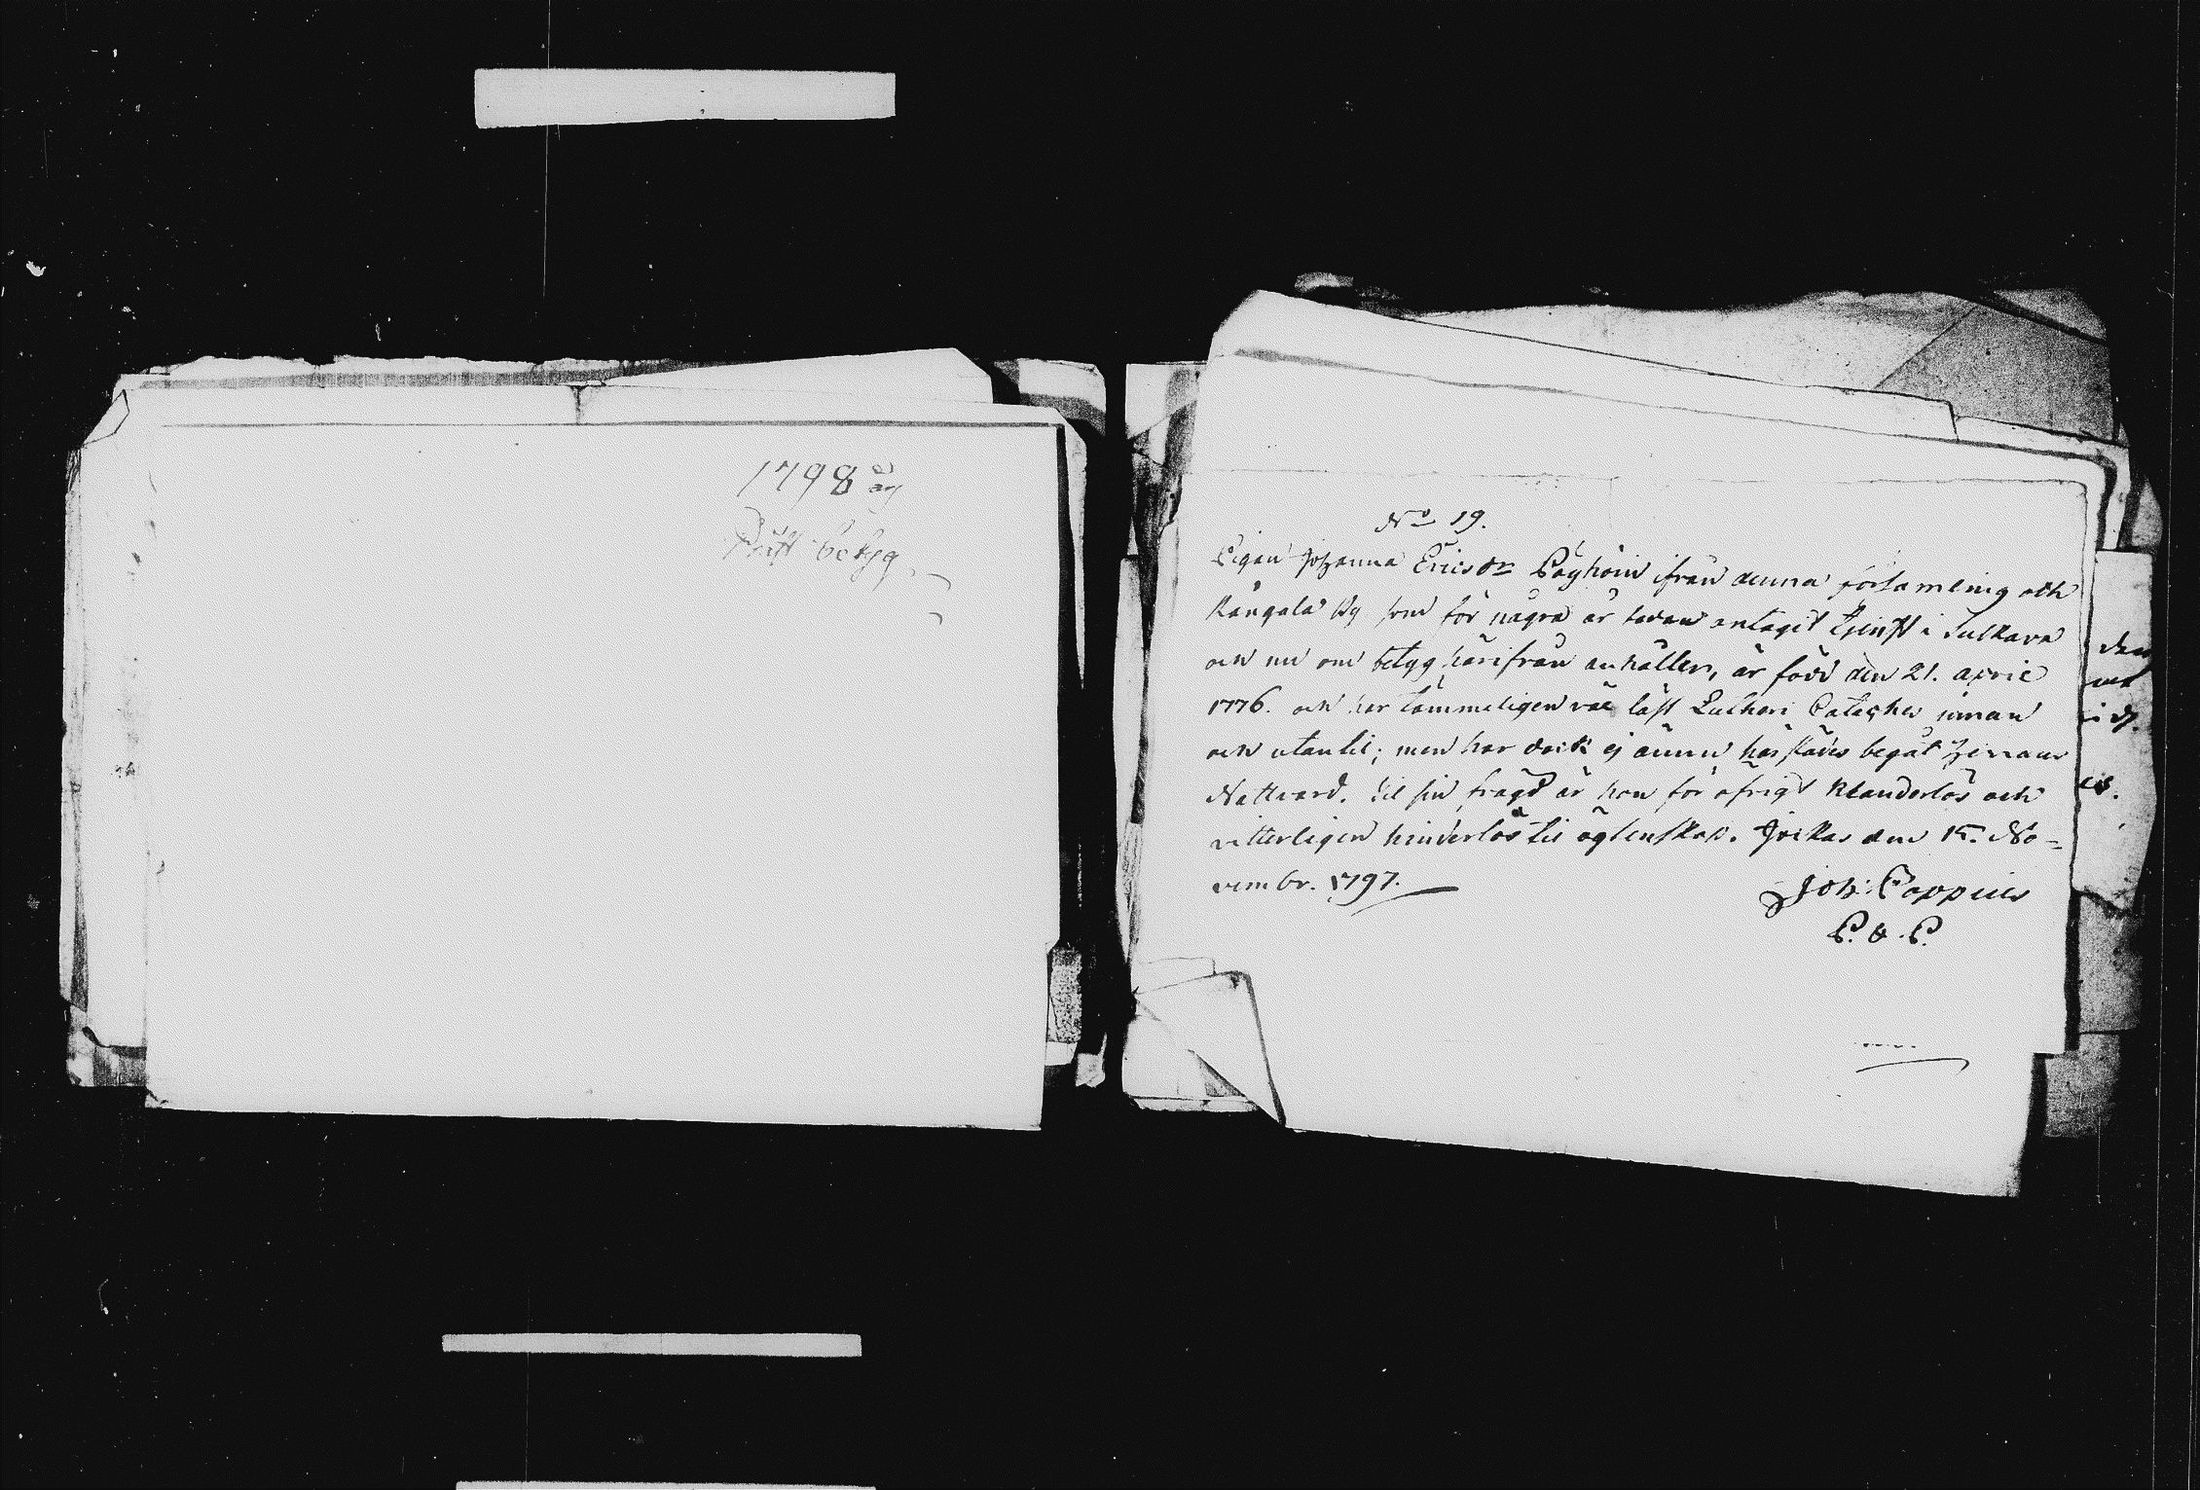 1798 år
Präst betyg
No 19.
Pigan Johanna Ericsdr Pöyhöin ifrån denna församling och
Kangala by som för några år sedan antagit tjenst i Sulkava
och nu om betyg härifrån anhåller, är född den 21. April
1776. och har tämmeligen väl läst Lutheri Cateches innan
och utantil; men har dock ej ännu härstädes begåt Herrans
Nattvard. Til sin frägd är hon för öfrigt klanderlös och
vitterligen hinderlös til ägtenskap. Jockas den 15. No-
vembr. 1797.
Joh: Coppius
P. & P.